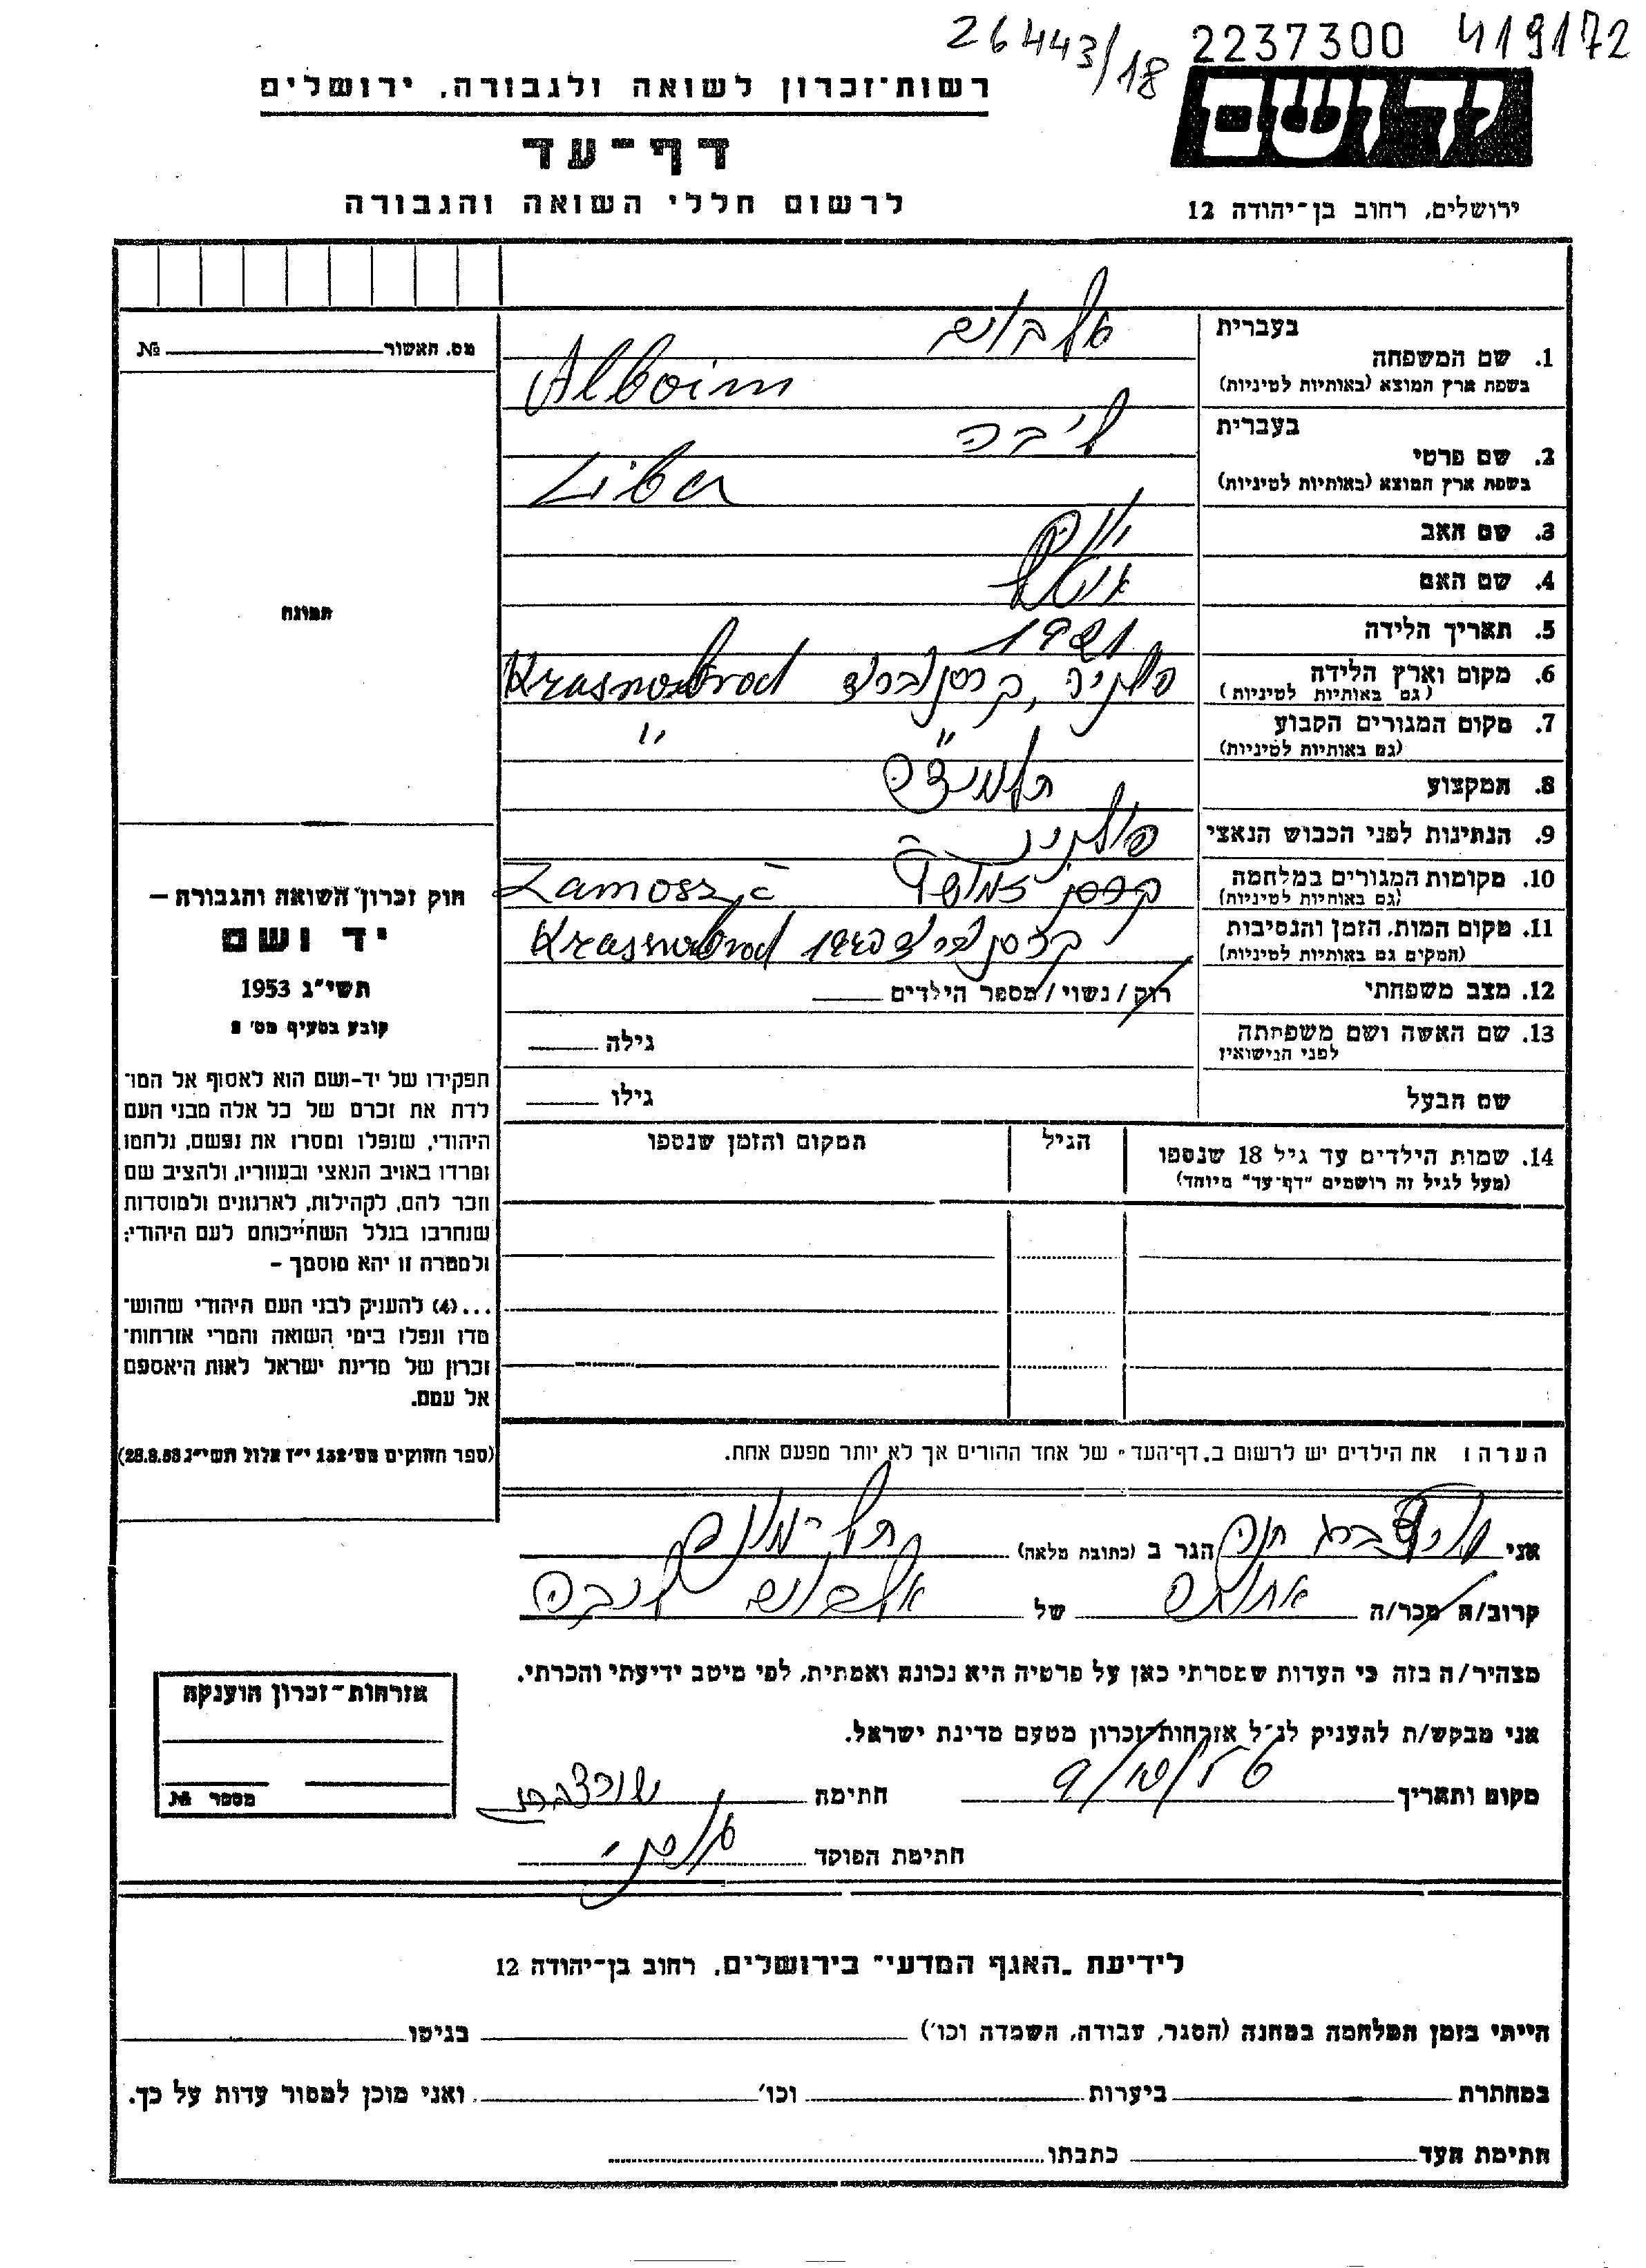 26443/18 2237300 419172
יד ושם
רשות־זכרון לשואה ולגבורה, ירושלים
דף־עד
לרשום חללי השואה והגבורה
ירושלים, רחוב בן־יהודה 12
בעברית
אלבוים
1. שם המשפחה
בשפת ארץ המוצא (באותיות לטיניות)
Alboim
בעברית
ליבה
2. שם פרטי
בשפת ארץ המוצא (באותיות לטיניות)
Liba
3. שם האב
4. שם האם
5. תאריך הלידה 1921
6. מקום וארץ הלידה פולניה, קרסנוברוד Krasnobrod
(גם באותיות לטיניות)
7. מקום המגורים הקבוע " "
(גם באותיות לטיניות)
8. המקצוע תלמידה
9. הנתינות לפני הכבוש הנאצי פולניה
10. מקומות המגורים במלחמה Zamosz
(גם באותיות לטיניות)
11. מקום המות, הזמן והנסיבות קרסנוברוד Krasnobrod
(המקום גם באותיות לטיניות)
12. מצב משפחתי רוק / נשוי / מספר הילדים
13. שם האשה ושם משפחתה גילה
לפני הנישואין
שם הבעל גילו
14. שמות הילדים עד גיל 18 שנספו הגיל המקום והזמן שנספו
(מעל לגיל זה רושמים "דף־עד" מיוחד)
הערה: את הילדים יש לרשום ב"דף־העד" של אחד ההורים אך לא יותר מפעם אחת.
מס. האשור №
תמונה
חוק זכרון השואה והגבורה –
יד ושם
תשי"ג 1953
קובע בסעיף מס' 2
תפקידו של יד-ושם הוא לאסוף אל המו־
לדת את זכרם של כל אלה מבני העם
היהודי, שנפלו ומסרו את נפשם, נלחמו
ומרדו באויב הנאצי ובעוזריו, ולהציב שם
וזכר להם, לקהילות, לארגונים ולמוסדות
שנחרבו בגלל השתייכותם לעם היהודי;
ולמטרה זו יהא מוסמך –
...(4) להעניק לבני העם היהודי שהוש־
מדו ונפלו בימי השואה והמרי אזרחות־
זכרון של מדינת ישראל לאות היאספם
אל עמם.
(ספר החוקים מס' 132 י"ז אלול תשי"ג 28.8.53)
אני חנה הגר ב (כתובת מלאה) תל-מונד
קרוב/ה מכר/ה אחותה של אלבוים ליבה
מצהיר/ה בזה כי העדות שמסרתי כאן על פרטיה היא נכונה ואמתית, לפי מיטב ידיעתי והכרתי.
אני מבקש/ת להעניק לנ"ל אזרחות־זכרון מטעם מדינת ישראל.
מקום ותאריך 9/10/56 חתימה
חתימת הפוקד
אזרחות־זכרון הוענקה
מספר №
לידיעת "האגף המדעי" בירושלים, רחוב בן־יהודה 12
הייתי בזמן המלחמה במחנה (הסגר, עבודה, השמדה וכו') בגיטו
במחתרת ביערות וכו' ואני מוכן למסור עדות על כך.
חתימת העד כתבתו